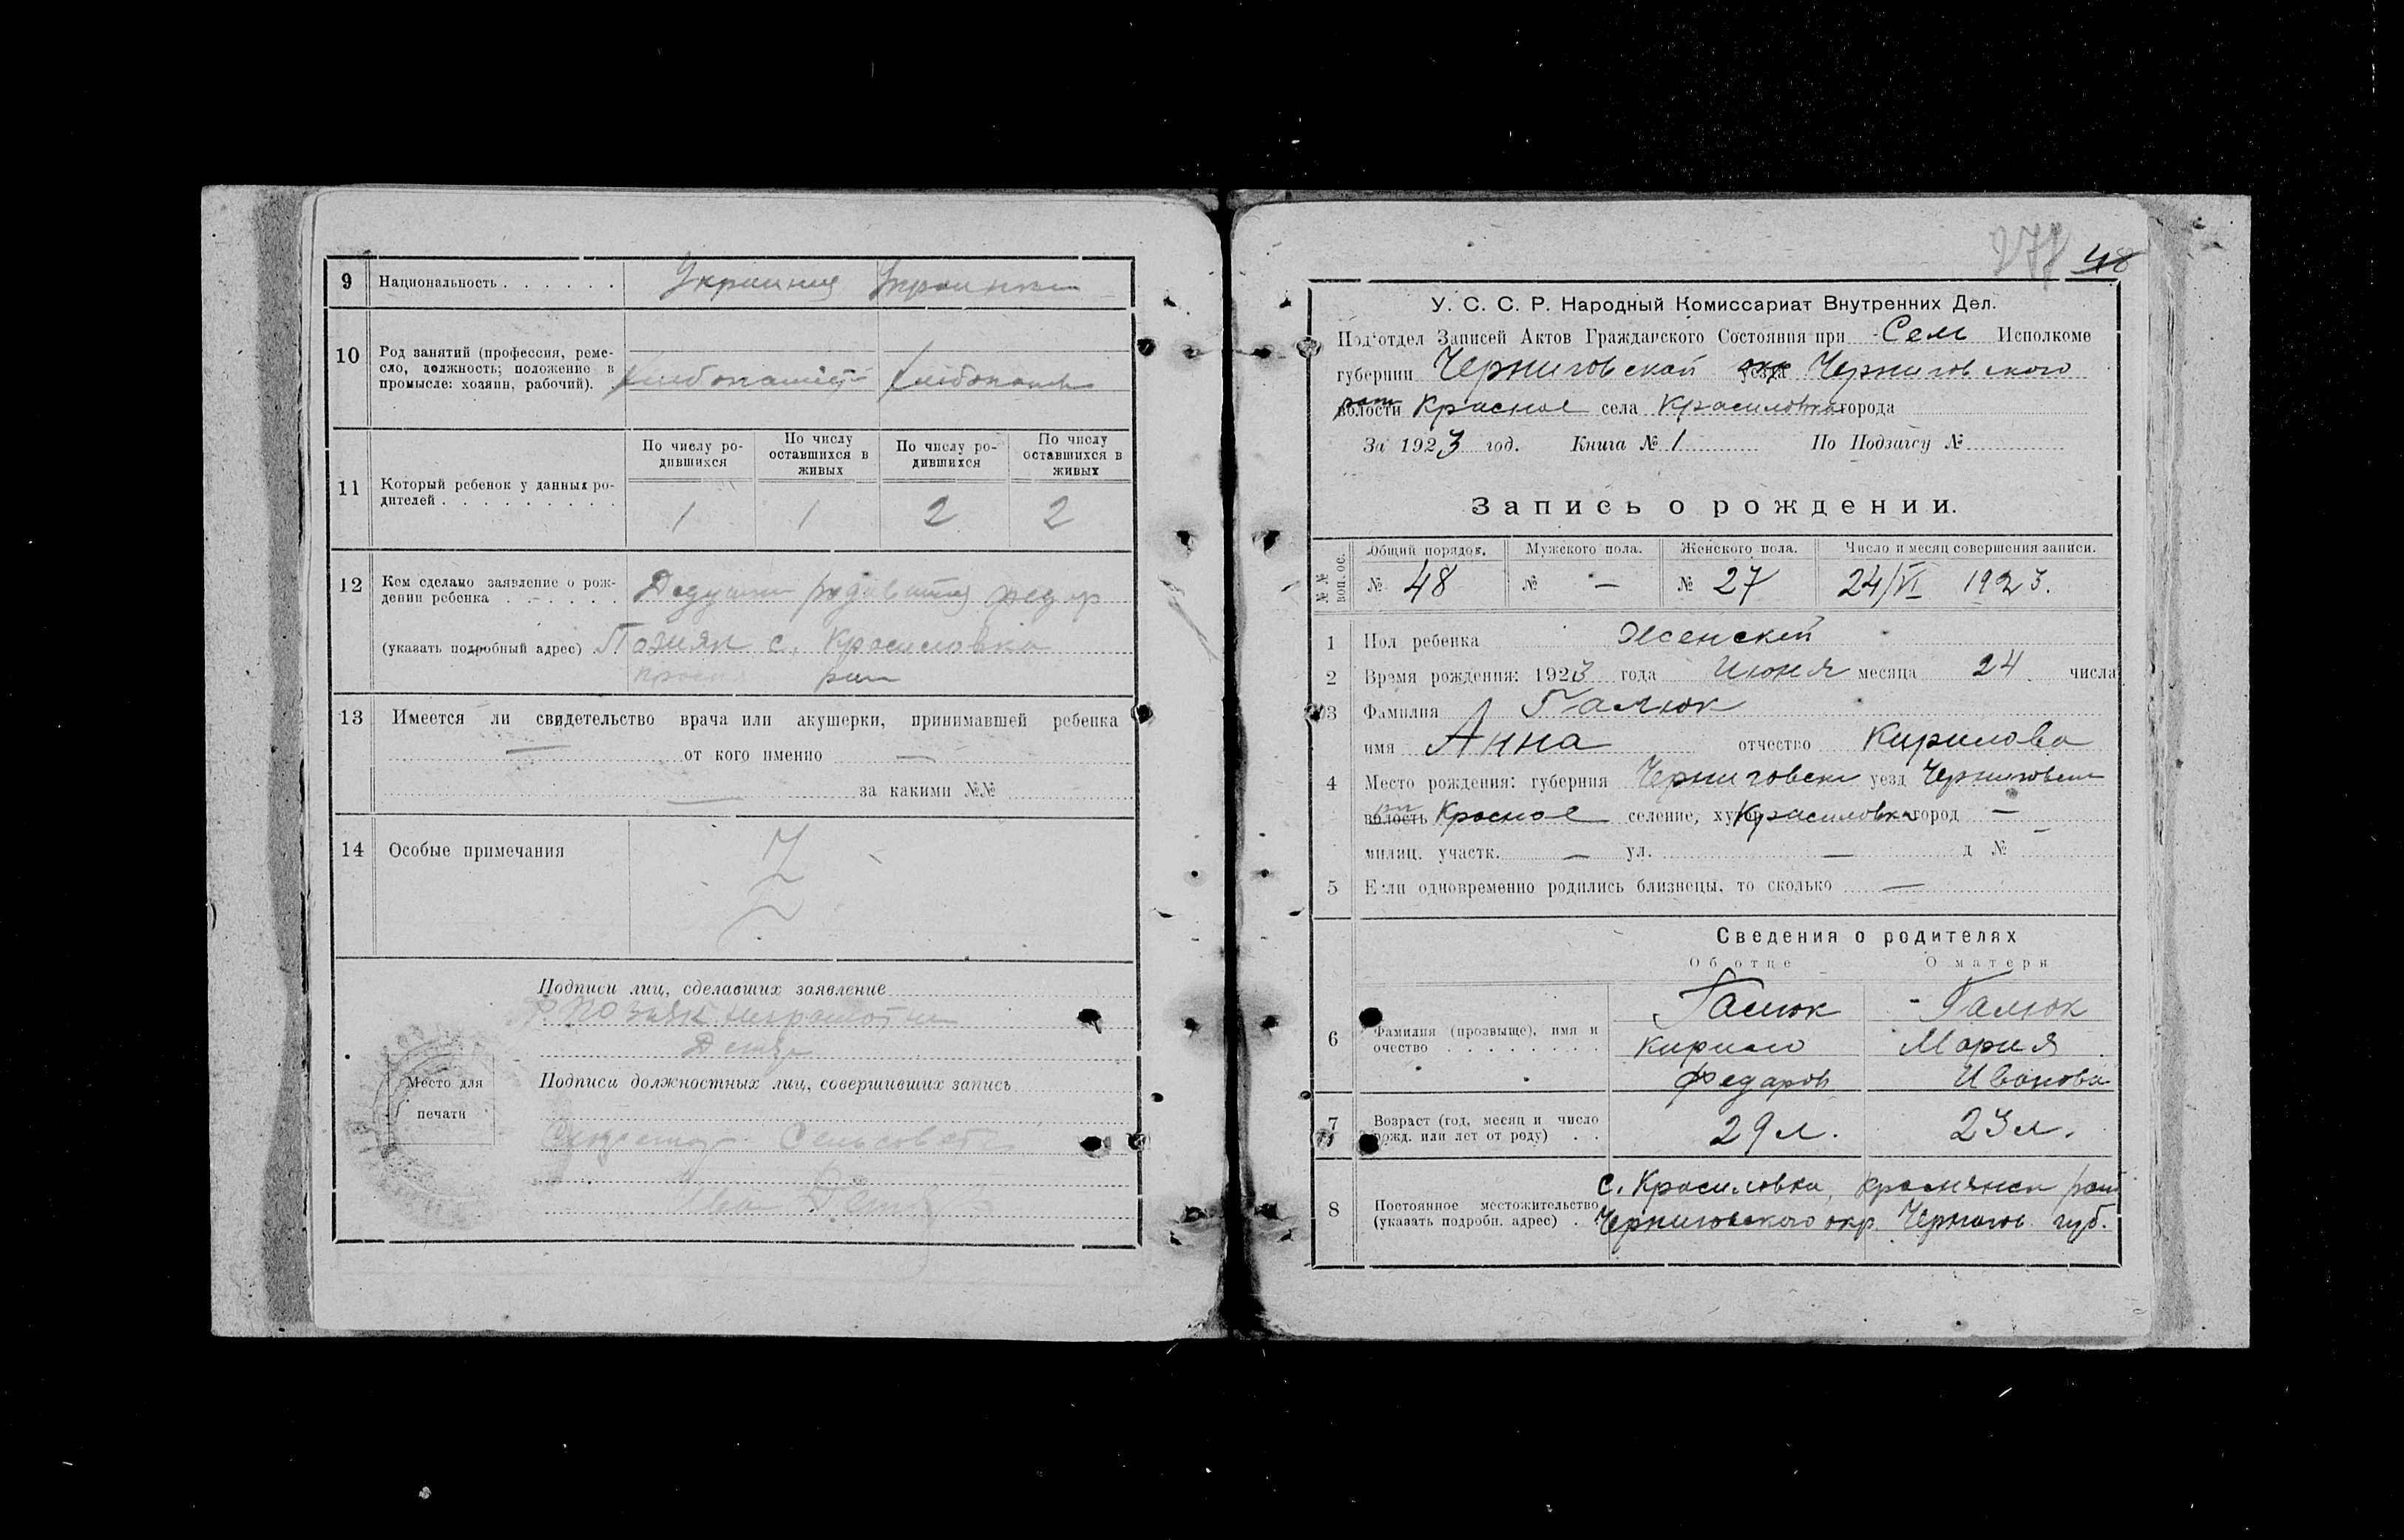 9 Национальность . . . . . .
10 Род занятий (профессия, реме-
сло, должность; положение в
промысле: хозяин, рабочий).
По числу ро-
дившихся
По числу
оставшихся в
живых
По числу ро-
дившихся
По числу
оставшихся в
живых
11 Который ребенок у данных ро-
дителей . . . . . . . . .
1 1 2 2
12 Кем сделано заявление о рож-
дении ребенка . . . . . .
(указать подробный адрес) с. Красиловка
13 Имеется ли свидетельство врача или акушерки, принимавшей ребенка
— от кого именно —
— за какими №№
14 Особые примечания
Подписи лиц, сделавших заявление
Место для
печати
Подписи должностных лиц, совершивших запись
Сельсовета
48
У. С. С. Р. Народный Комиссариат Внутренних Дел.
Подотдел Записей Актов Гражданского Состояния при Сель Исполкоме
губернии Черниговской окр Черниговского
волости Красное села Красиловка города
За 1923 год. Книга № 1 По Подзагсу №
Запись о рождении.
№№ воп. ос.
Общий порядов. Мужского пола. Женского пола. Число и месяц совершения записи.
№ 48 № — № 27 24/VI 1923.
1 Пол ребенка Женский
2 Время рождения: 1923 года Июня месяца 24 числа
3 Фамилия Галюк
имя Анна отчество Кирилова
4 Место рождения: губерния Черниговск уезд Черниговск
волость Красное селение, хутор Красиловка город —
милиц. участк. — ул. — д №
5 Если одновременно родились близнецы, то сколько —
Сведения о родителях
Об отце О матери
6 Фамилия (прозвыще), имя и
очество . . . . . . . .
Галюк Галюк
Кирило Мария
Федаров Иванова
7 Возраст (год, месяц и число
рожд. или лет от роду) . .
29 л. 23 л.
8 Постоянное местожительство
(указать подробн. адрес) .
с. Красиловка, раи
Черниговского окр. Чернигов губ.